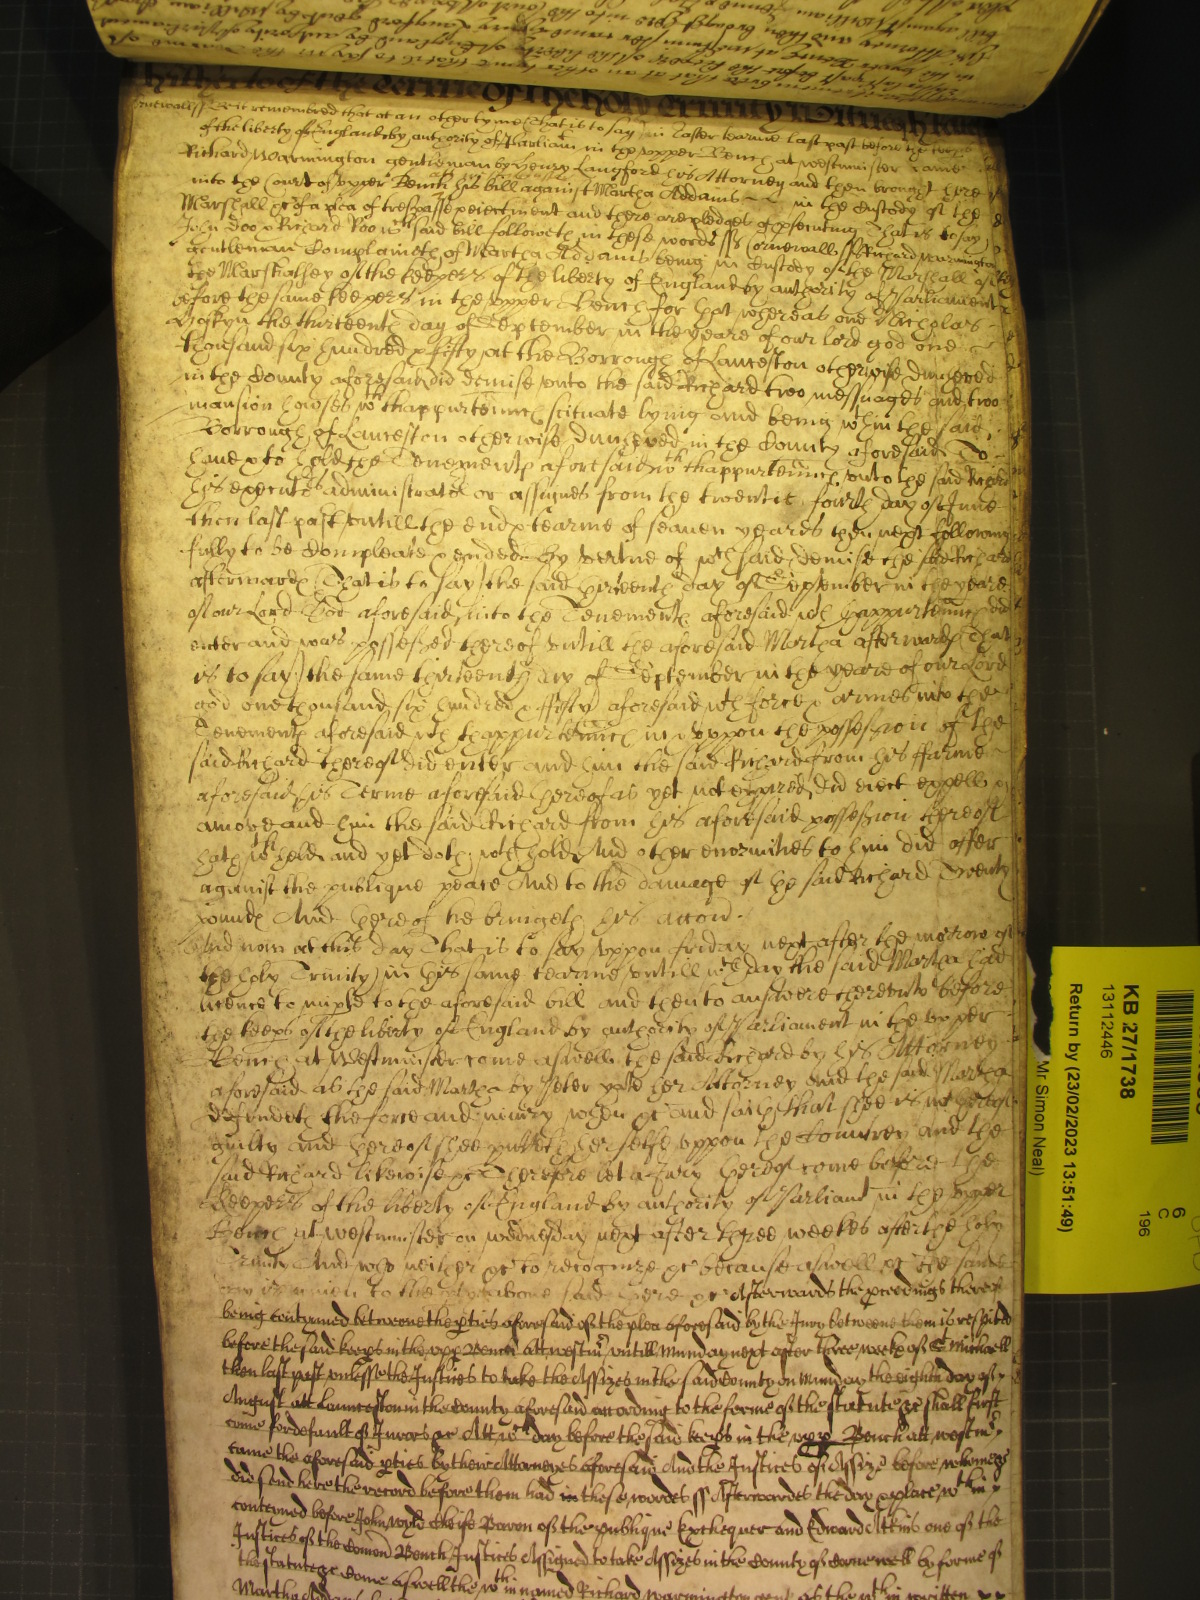 Cornewall ss Be it remembred that at an other tyme (that is to say) in Easter tearme last past before the keeps
of the liberty of England by authority of Parliamt in the upper Bench at Westminster came
Richard Warmington gentleman by Henry Langford his Attorney and then brought here
into the Court of upper Bench his bill against Martha Addams in the Custody of the
Marshall &c of a plea of trespasse & eiectment and there are pledges of psecuting That is to say
John Doo & Richard Roo wch said bill followeth in these words ss Cornewall ss Richard Warmington
gentleman Complaineth of Martha Addams being in Custody of the Marshall of
the Marshalsey of the keepers of the liberty of England by authority of Parliament
before the same keepers in the upper Bench for that whereas one Nicholas
Boskyn the thirteenth day of September in the yeare of our lord god one
thousand six hundred & fifty at the Borrough of Lanceston otherwise Dunheved
in the County aforesaid did demise unto the said Richard two messuages and two
mansion howses wth thappurtennces scituate lying and being wthin the said
Borrough of Lanceston otherwise Dunheved in the County aforesaid To
have & to hold the Tenements aforesaid wth thappurtennces unto the said Richard
his executrs administratrs or assignes from the twentie fourth day of June
then last past untill the end & tearme of seaven yeares then next following
fully to be Compleate & ended By vertue of wch said demise the said Richard
afterwards (That is to say) the said thirteenth day of September in the yeare
of our Lord God aforesaid into the Tenements aforesaid wth thappurtennces did
enter and was possessed thereof untill the aforesaid Martha afterwards That
is to say) the same thirteenth day of September in the yeare of our Lord
god one thousand six hundred & fifty aforesaid wth force & armes into the
Tenements aforesaid wth thappurtennces in & uppon the possession of the
said Richard thereof did enter and him the said Richard from his ffarme
aforesaid his Terme aforesaid thereof as yet not expired did eiect expell &
amove and him the said Richard from his aforesaid possession thereof
hath wthheld and yet doth wthhold And other enormities to him did offer
against the publique peace And to the damage of the said Richard Twenty
pounds And thereof he bringeth his accon
And now at this day That is to say uppon friday next after the morrow of
the holy Trinity in this same tearme untill wch day the said Martha had
licence to imple to the aforesaid bill and then to answere thereunto before
the keeps of the liberty of England by authority of Parliament in the upper
Bench at Westminster come aswell the said Richard by his Attorney
aforesaid as the said Martha by Peter yate her Attorney And the said Martha
defendeth the force and iniury when &c and saith that shee is not thereof
guilty and thereof shee putteth her selfe uppon the Countrey and the
said Richard likewise &c Therefore let a Jury thereof come before the
keepers of the liberty of England by authority of Parliamt in the upper
Bench at westminster on wednesday next after three weekes after the holy
Trinity And who neither &c to recognize &c because aswell &c The same
day is given to the ptyes above said there &c Afterwards the pceedings thereof
being continued betweene the pties aforesaid of the plea aforesaid by the Jury betweene them is respited
before the said keeps in the upp Bench att westmr untill Munday next after three weeks of St Michaell
then last past unlesse the Justices to take the Assizes in the said County on Munday the eighth day of
August att Launceston in the County aforesaid according to the forme of the statute &c shall first
come for default of Jurors &c Att wch day before the said keeps in the upp Bench att westmr
came the aforesaid pties by their Attorneyes aforesaid And the Justices of Assize before whome &c
did send here the record before them had in these wordes ss Afterwardes the day & place wthin
conteined before John wylde Cheife Baron of the publique Exchequer and Edward Atkins one of the
Justices of the Comon Bench Justices Assigned to take Assizes in the County of Cornewall by forme of
the statute &c Come aswell the wthin named Richard warmington gent as the wthin written
KB 27/1738
13112446
Return by (23/02/2023 13:51:49)
Mr. Simon Neal)
6
C
196